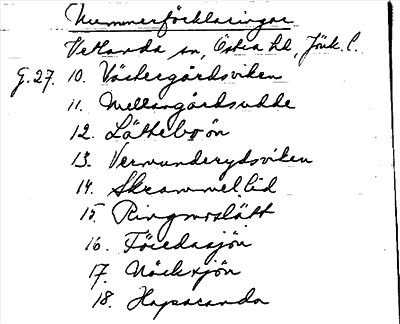 Nummerförklaringar
Vetlanda sn, Östra hd, Jönk. l.
G. 27. 10. Västergårdsviken
11. Mellangårdsudde
12. Lätteboön
13. Vermunderydsviken
14. Skrammellid
15. Ringmoslätt
16. Föredasjön
17. Näcksjön
18. Haparanda